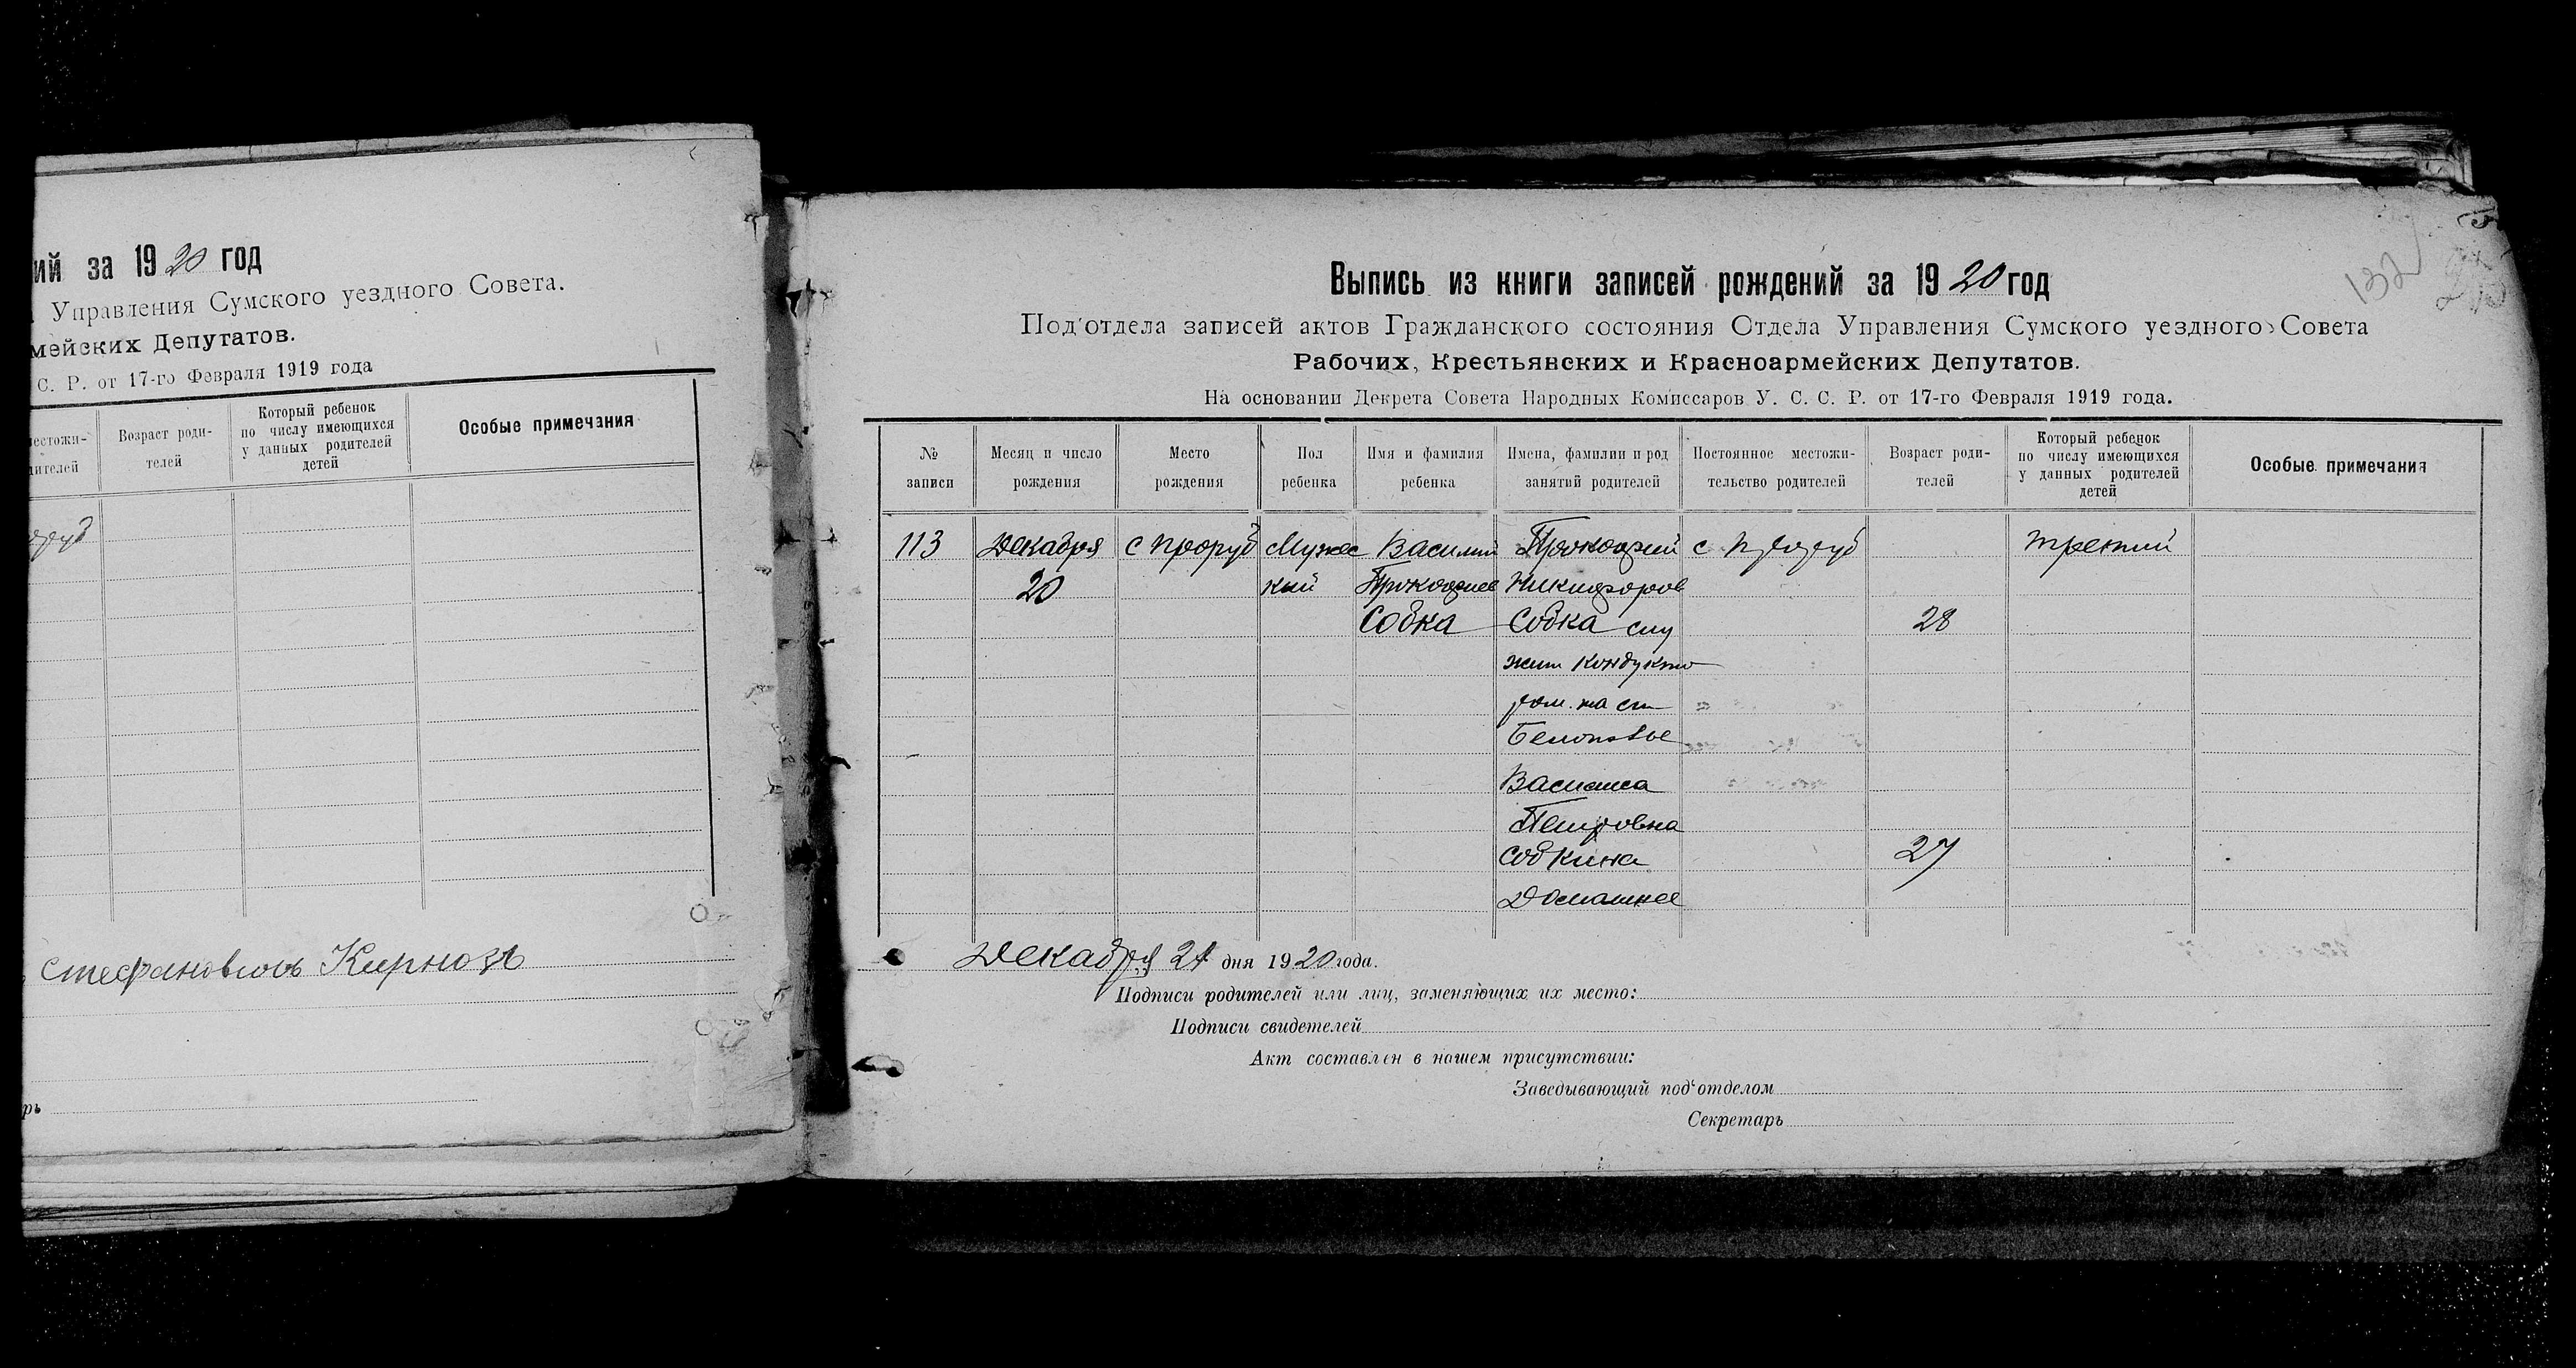 ий за 1920 год
Управления Сумского уездного Совета.
мейских Депутатов.
С. Р. от 17-го Февраля 1919 года
местожи-
дителей
Возраст роди-
телей
Который ребенок
по числу имеющихся
у данных родителей
детей
Особые примечания
Стефановичъ
рь
132
Выпись из книги записей рождений за 1920 год
Под'отдела записей актов Гражданского состояния Отдела Управления Сумского уездного Совета
Рабочих, Крестьянских и Красноармейских Депутатов.
На основании Декрета Совета Народных Комиссаров У. С. С. Р. от 17-го Февраля 1919 года.
№
записи
Месяц и число
рождения
Место
рождения
Пол
ребенка
Имя и фамилия
ребенка
Имена, фамилии и род
занятий родителей
Постоянное местожи-
тельство родителей
Возраст роди-
телей
Который ребенок
по числу имеющихся
у данных родителей
детей
Особые примечания
113 Декабря с Проруб Мужес Василий Прокофий с Проруб третий
20 кий Прокофиев Никифоров
Собка Собка слу 28
жит кондукто
ром. на ст
Васи
Петровна
Собкина 27
Домашнее
Декабря 21 дня 1920 года.
Подписи родителей или лиц, заменяющих их место:
Подписи свидетелей
Акт составлен в нашем присутствии:
Заведывающий под'отделом
Секретарь